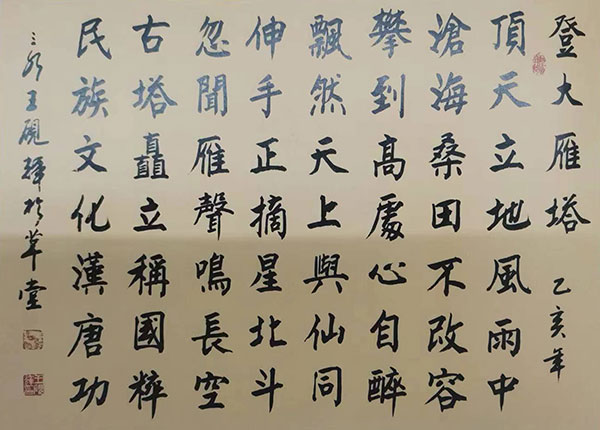 登大雁塔 乙亥年
頂天立地風雨中
滄海桑田不改容
攀到高處心自醉
飄然天上與仙同
伸手正摘星北斗
忽聞雁聲鳴長空
古塔矗立稱國粹
民族文化漢唐功
王硯輝於草堂